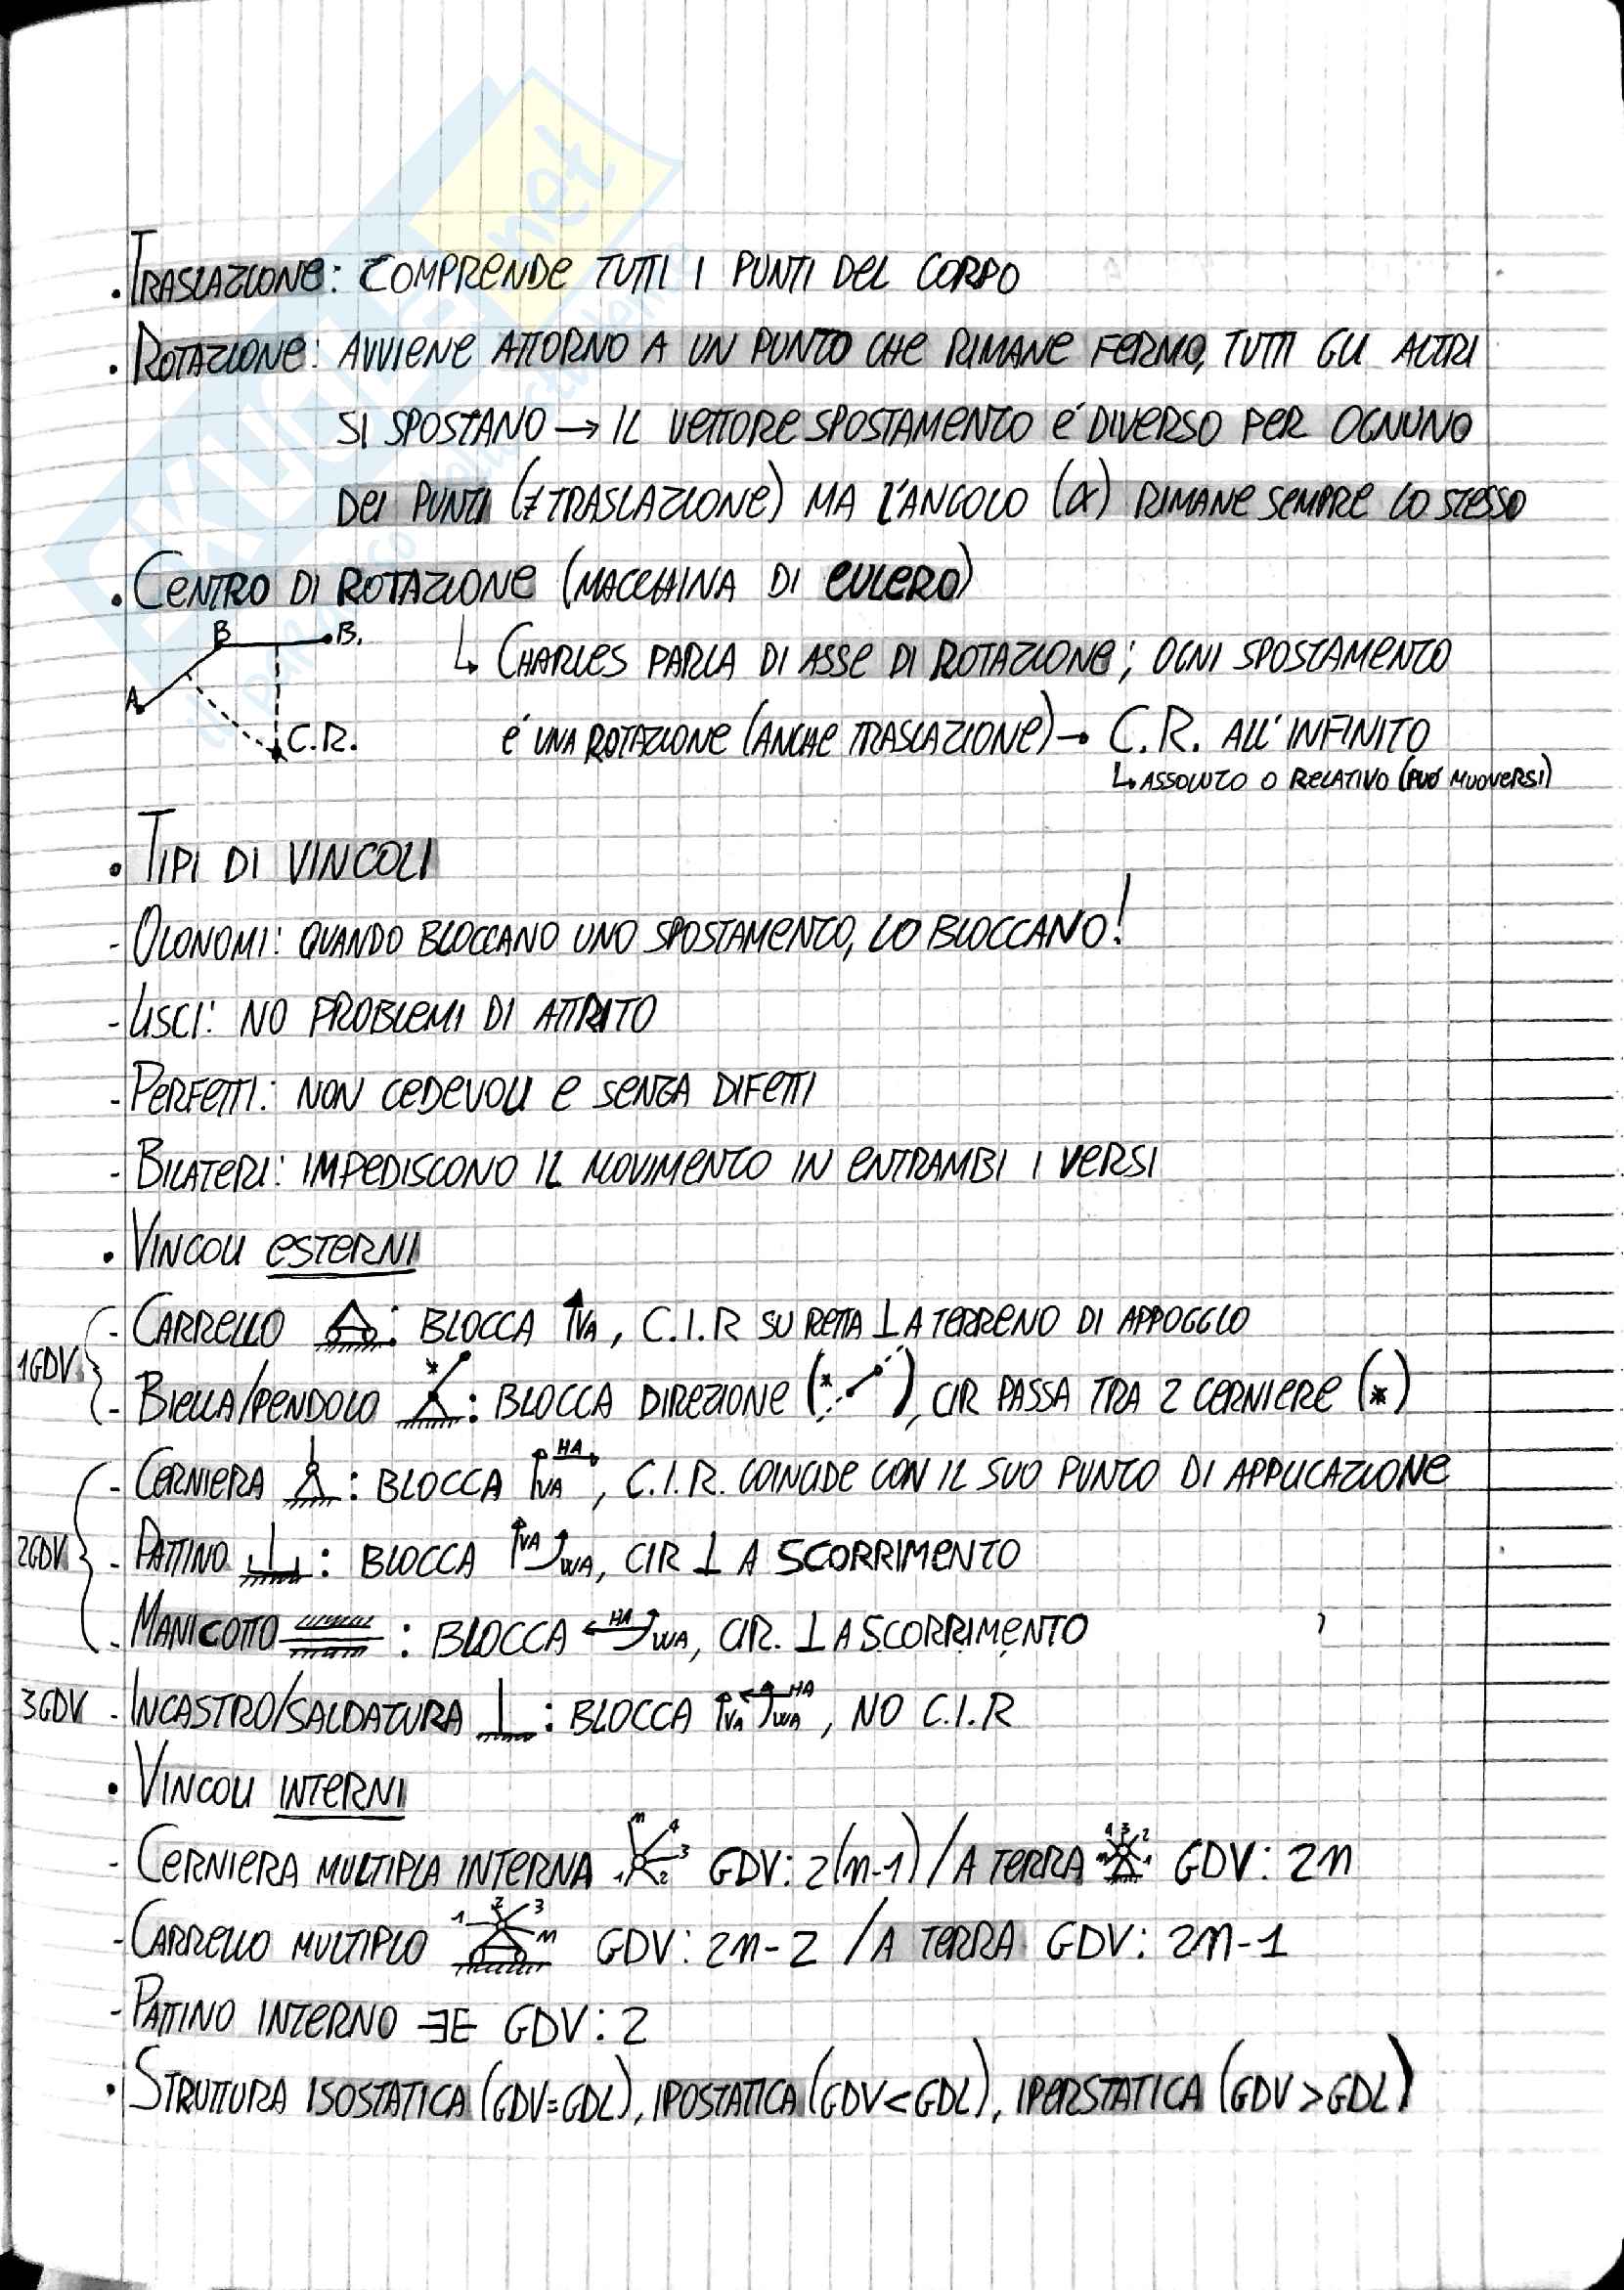 . TRASLAZIONE: COMPRENDE TUTTI I PUNTI DEL CORPO
. ROTAZIONE: AVVIENE ATTORNO A UN PUNTO CHE RIMANE FERMO, TUTTI GLI ALTRI
SI SPOSTANO → IL VETTORE SPOSTAMENTO É DIVERSO PER OGNUNO
DEI PUNTI (≠ TRASLAZIONE) MA L'ANGOLO (α) RIMANE SEMPRE LO STESSO
. CENTRO DI ROTAZIONE (MACCHINA DI EULERO)
B B,
↳ CHARLES PARLA DI ASSE DI ROTAZIONE; OGNI SPOSTAMENTO
A
C.R.
É UNA ROTAZIONE (ANCHE TRASLAZIONE) → C.R. ALL'INFINITO
↳ ASSOLUTO O RELATIVO (PUÓ MUOVERSI)
• TIPI DI VINCOLI
- OLONOMI: QUANDO BLOCCANO UNO SPOSTAMENTO, LO BLOCCANO!
- LISCI: NO PROBLEMI DI ATTRITO
- PERFETTI: NON CEDEVOLI E SENZA DIFETTI
- BILATERI: IMPEDISCONO IL MOVIMENTO IN ENTRAMBI I VERSI
• VINCOLI ESTERNI
- CARRELLO : BLOCCA ↑VA, C.I.R SU RETTA ⊥ A TERRENO DI APPOGGIO
1GDV
- BIELLA/PENDOLO * : BLOCCA DIREZIONE (*), CIR PASSA TRA 2 CERNIERE (*)
- CERNIERA : BLOCCA VA HA, C.I.R. COINCIDE CON IL SUO PUNTO DI APPLICAZIONE
2GDV - PATTINO : BLOCCA VA WA, CIR ⊥ A SCORRIMENTO
- MANICOTTO : BLOCCA HA WA, CIR. ⊥ A SCORRIMENTO
3GDV - INCASTRO/SALDATURA : BLOCCA VA HA WA, NO C.I.R
• VINCOLI INTERNI
- CERNIERA MULTIPLA INTERNA 1 2 3 4 n GDV: 2(n-1) / A TERRA 1 2 3 4 n GDV: 2n
- CARRELLO MULTIPLO 1 2 3 n GDV: 2n-2 / A TERRA GDV: 2n-1
- PATTINO INTERNO GDV: 2
• STRUTTURA ISOSTATICA (GDV=GDL), IPOSTATICA (GDV<GDL), IPERSTATICA (GDV>GDL)